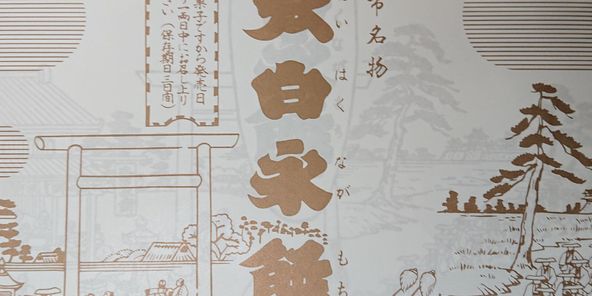 市名物
いはくながもち
白永餅
菓子ですから発売日
り一両日中にお召し上り
さい（保存期日三日間）